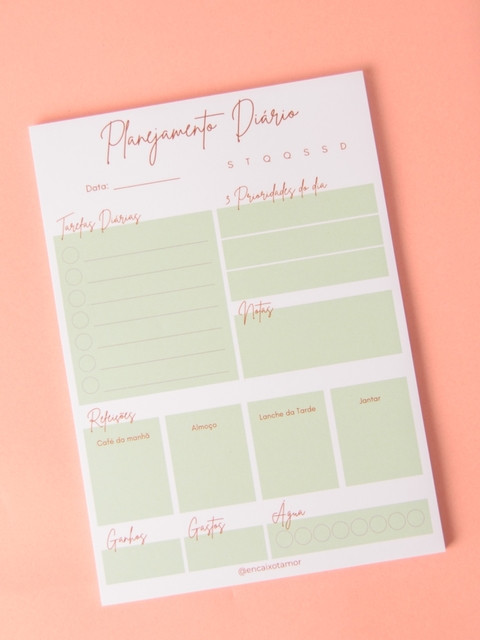 Planejamento Diário
S T Q Q S S D
Data:
3 Prioridades do dia
Tarefas Diárias
Notas
Refeições
Café da manhã
Almoço
Lanche da Tarde
Jantar
Ganhos
Gastos
Água
@encaixotamor